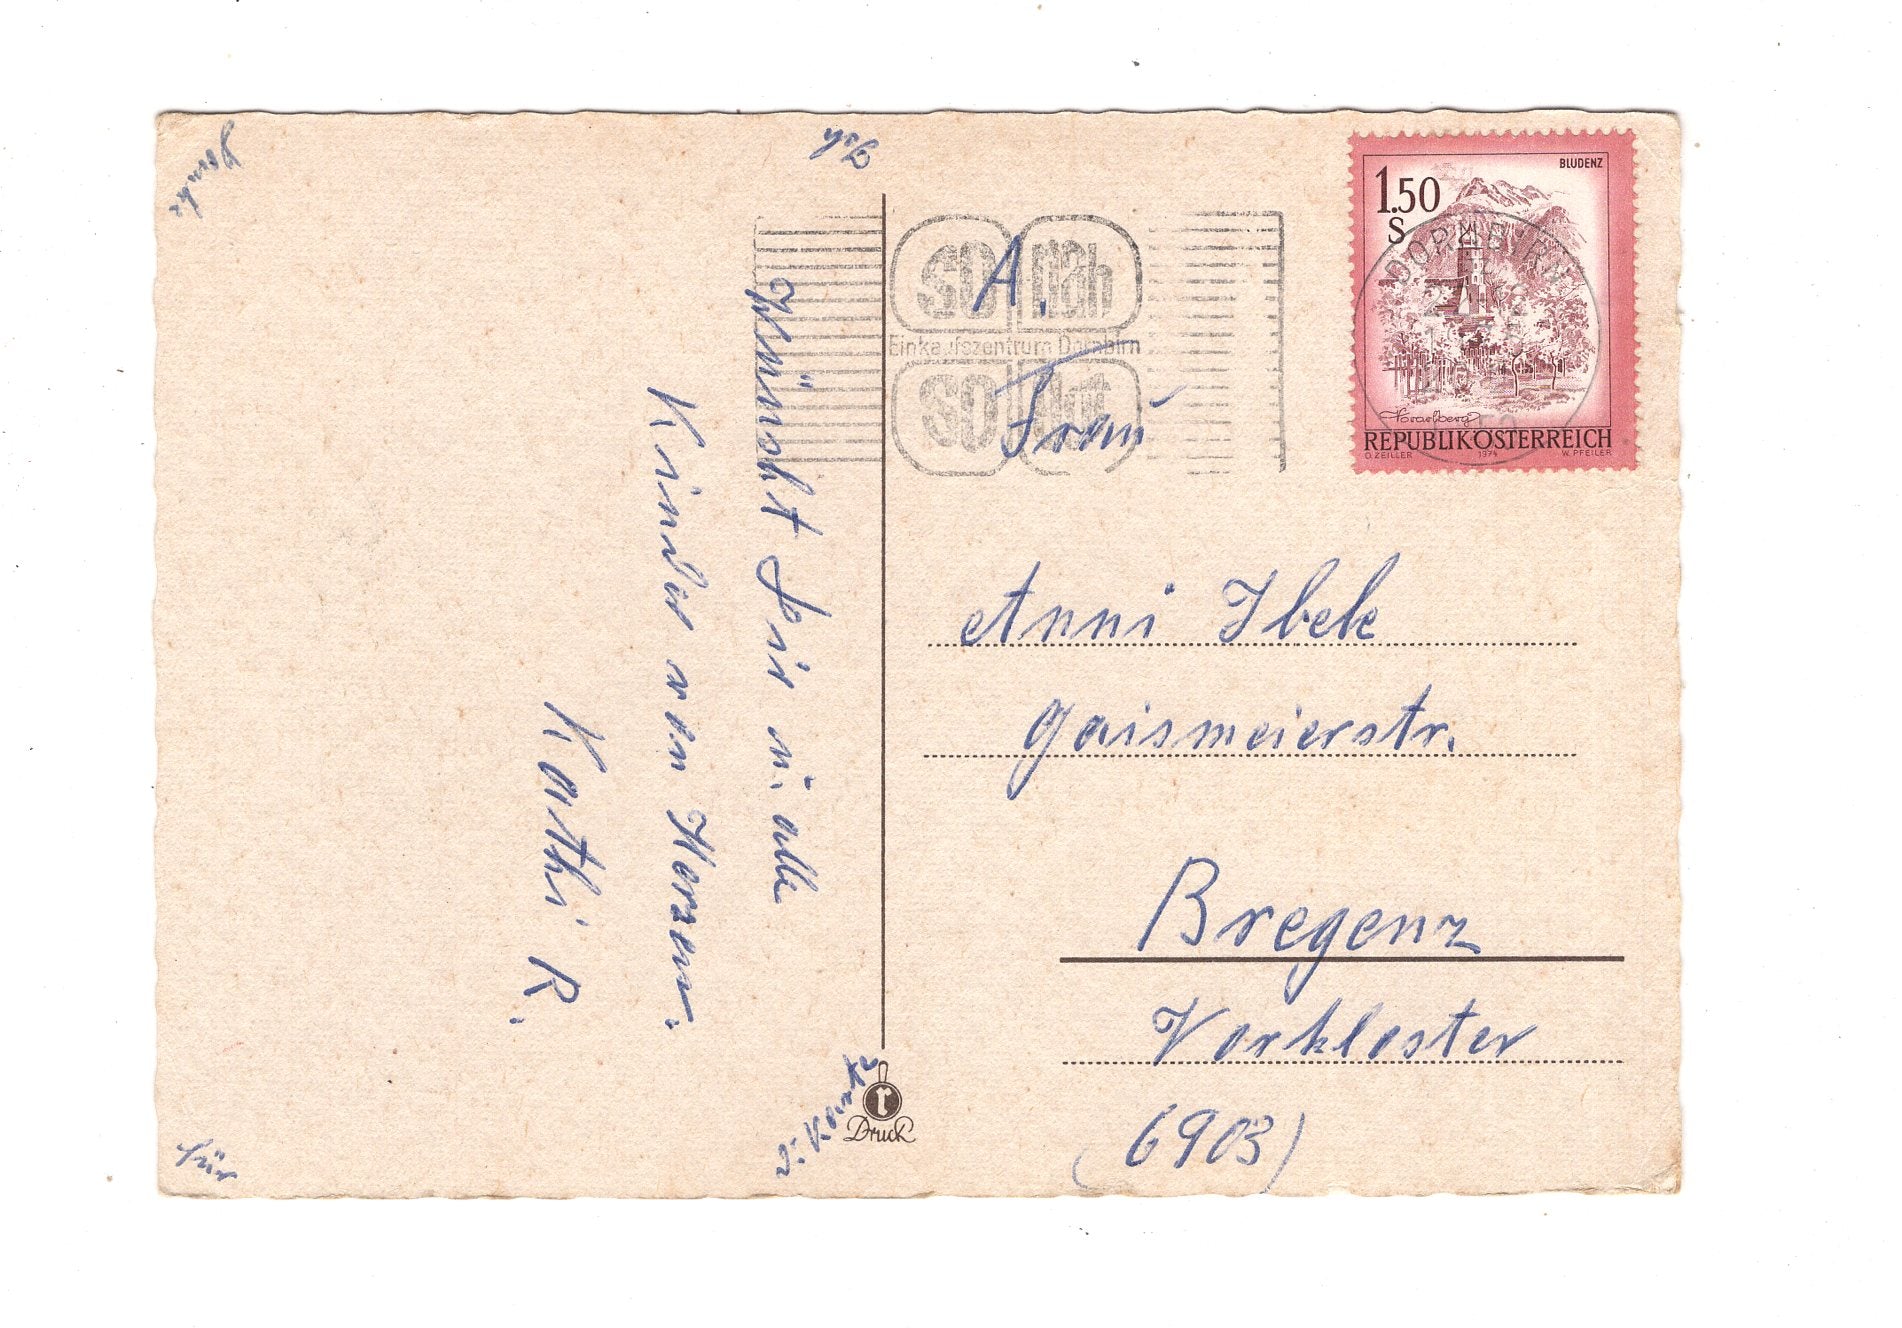 Ich
danke
für
die Karte
Wünscht Dir u. alle
Kinder von Herzen.
Kathi R.
so nah
Einkaufszentrum Dornbirn
so gut
1.50
S
BLUDENZ
DORNBIRN
Vorarlberg
REPUBLIK ÖSTERREICH
O. ZEILLER 1974 W. PFEILER
A.
Frau
Anni Ibele
Gaismeierstr.
Bregenz
Vorkloster
(6903)
r
Druck